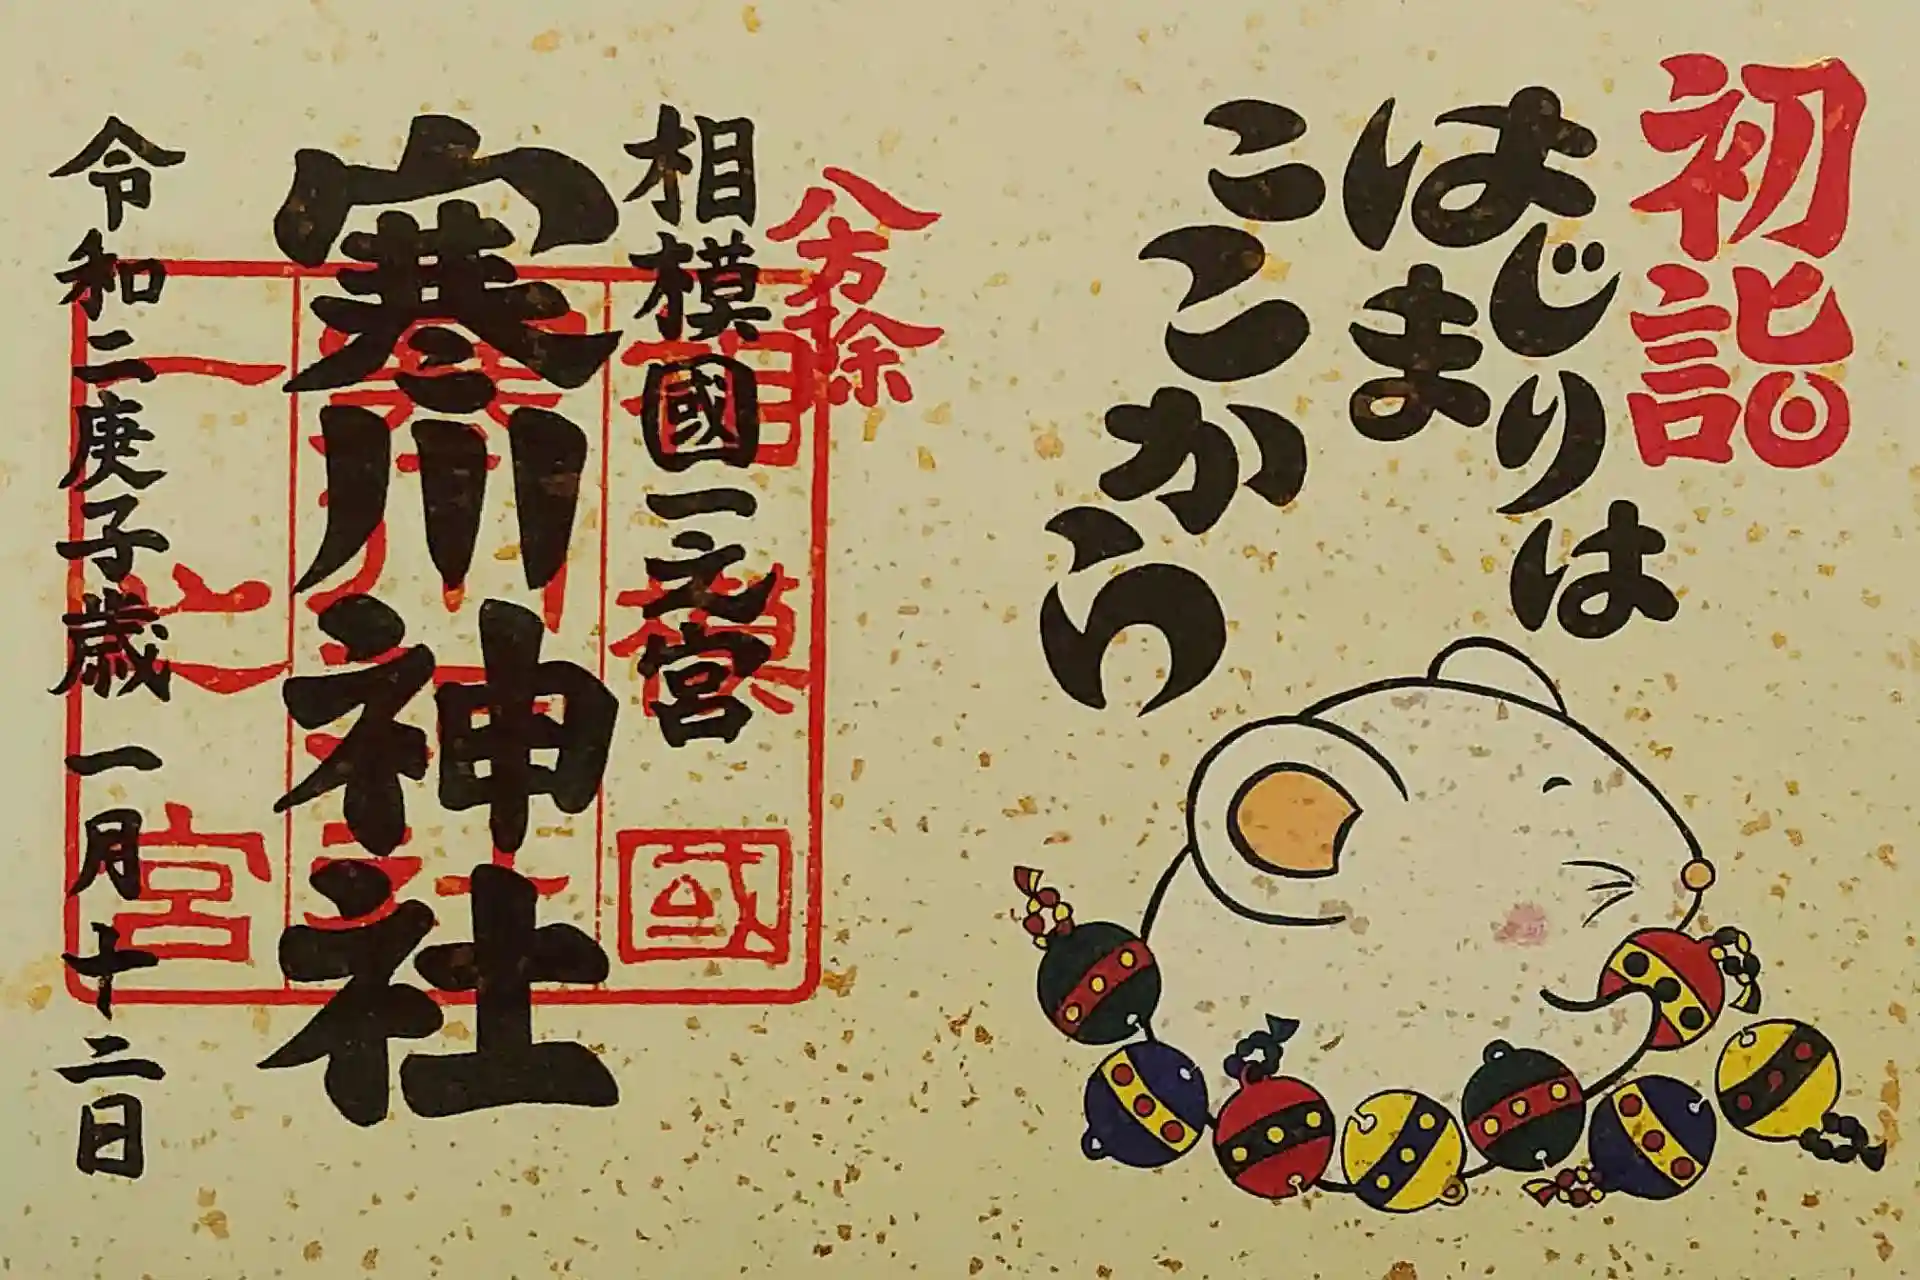 初詣
はじまりは
ここから
八方除
相模國一之宮
寒川神社
令和二庚子歳 一月十二日
相模國
寒川神社
一之宮